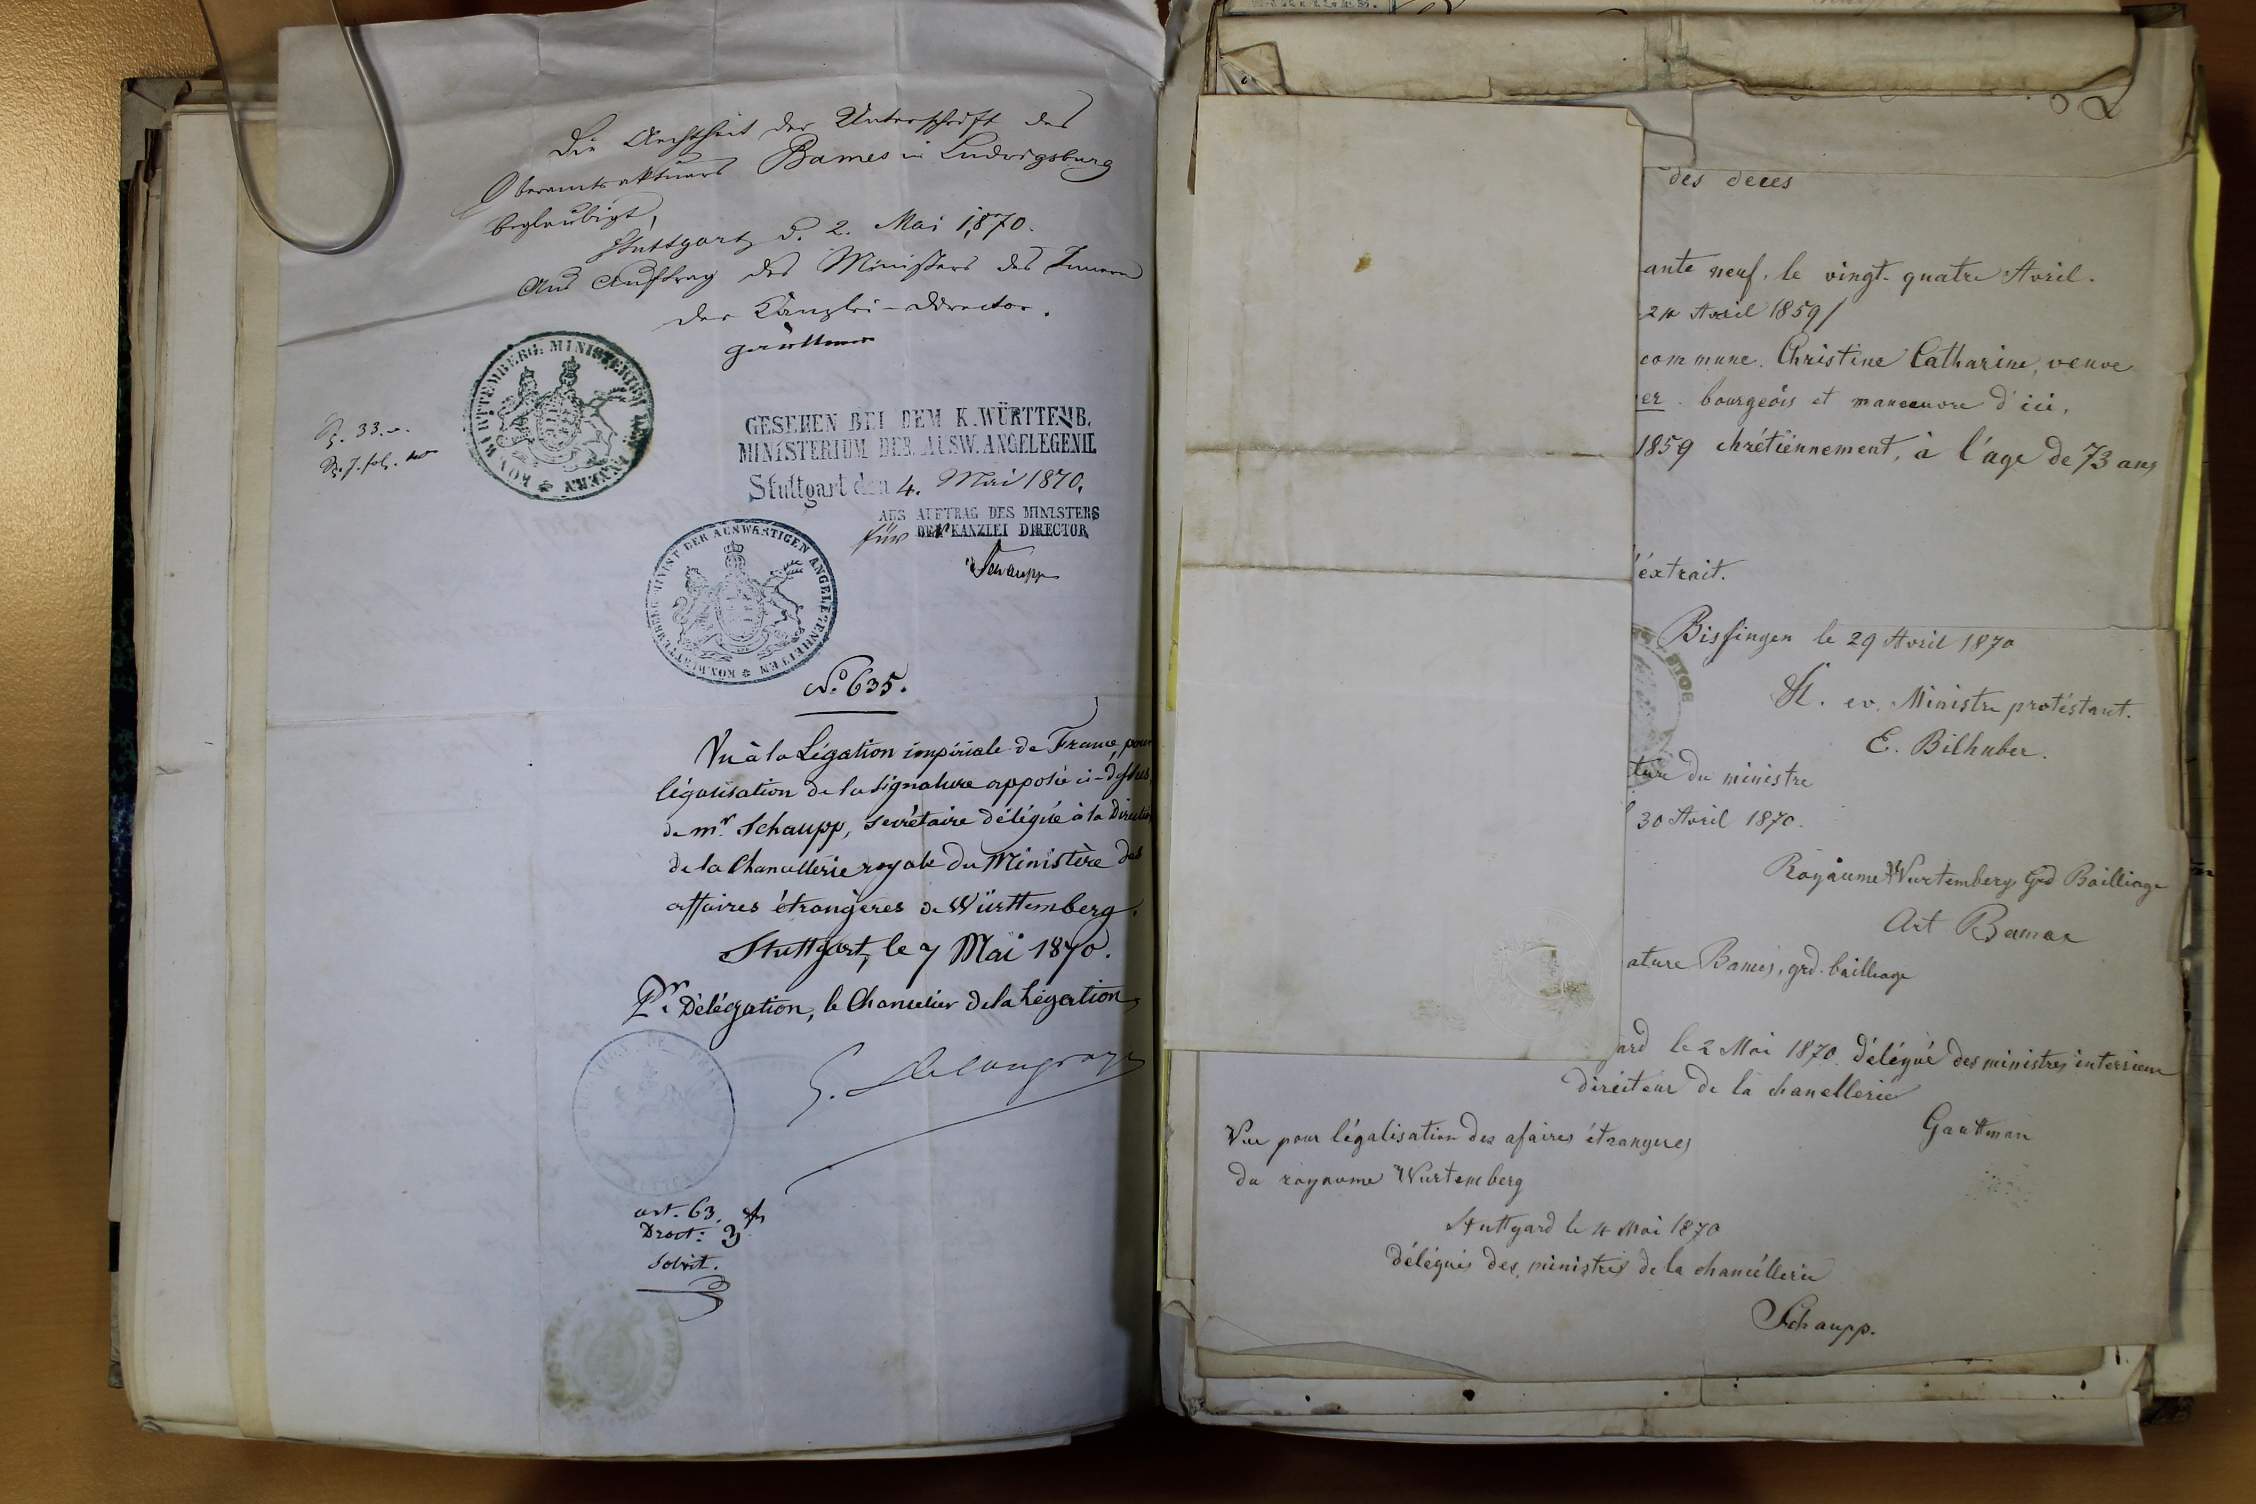 Die Aechtheit der Unterschrift des
Oberamtsaktuars Bames in Ludwigsburg
beglaubigt,
Stuttgart d. 2. Mai 1870.
Aus Auftrag des Ministers des Innern
der Kanzlei-Director.
KÖN. WÜRTTEMBERG. MINISTERIUM DES INNERN
GESEHEN BEI DEM K. WÜRTTEMB.
MINISTERIUM DER AUSW. ANGELEGENH.
Stuttgart den 4. Mai 1870.
AUS AUFTRAG DES MINISTERS
für DER KANZLEI DIRECTOR
Schaupp
KÖN. WÜRTTEMBERG. MINIST. DER AUSWÄRTIGEN ANGELEGENHEITEN
No 635.
Vu à la Légation impériale de France, pour
légalisation de la signature apposée ci-dessus,
de mr. Schaupp, secrétaire délégué à la Direction
de la Chancellerie royale du Ministère des
affaires étrangères de Württemberg.
Stuttgart, le 7 Mai 1870.
Pr. Délégation, le Chancelier de la Légation,
art. 63.
Droit: 3 fr
Solvit.
des deces
ante neuf. le vingt-quatre Avril.
24 Avril 1859/
commune. Christine Catharine, veuve
er bourgeois et maneuvre d'ici,
1859 chrétiennement, à l'age de 73 ans
éxtrait.
Bissingen le 29 Avril 1870
St. ev. Ministre protéstant.
E. Bilhuber.
ture du ministre
30 Avril 1870.
Royaume Wurtemberg Grd Bailliage
Act Bames
ature Bames, grd. bailliage
ard le 2 Mai 1870. délégué des ministres interieur
diréiteur de la chanellerie
Gauttman
Vue pour légalisation des afaires étrangeres
du royaume Wurtemberg
Stuttgard le 4 Mai 1870
délégués des ministres de la chancéllerie
Schaupp.